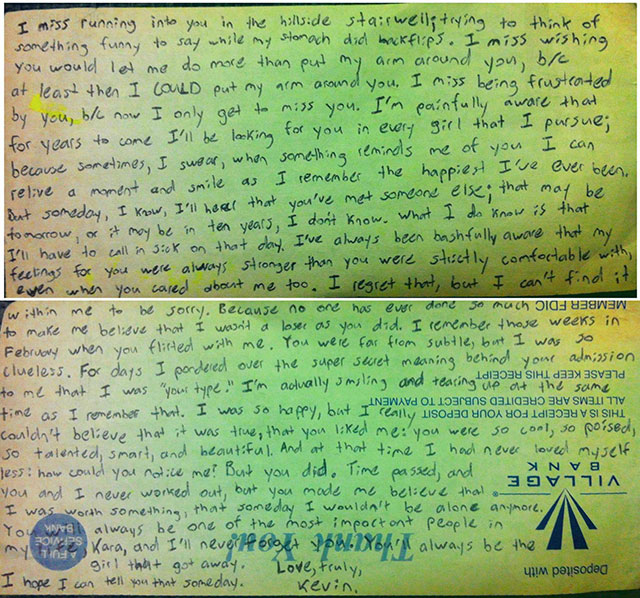 I miss running into you in the hillside stairwell; trying to think of
something funny to say while my stomach did backflips. I miss wishing
you would let me do more than put my arm around you, b/c
at least then I COULD put my arm around you. I miss being frustrated
by you, b/c now I only get to miss you. I'm painfully aware that
for years to come I'll be looking for you in every girl that I pursue;
because sometimes, I swear, when something reminds me of you I can
relive a moment and smile as I remember the happiest I've ever been.
But someday, I know, I'll hear that you've met someone else; that may be
tomorrow, or it may be in ten years, I don't know. What I do know is that
I'll have to call in sick on that day. I've always been bashfully aware that my
feelings for you were always stronger than you were strictly comfortable with,
even when you cared about me too. I regret that, but I can't find it
within me to be sorry. Because no one has ever done so much
to make me believe that I wasn't a loser as you did. I remember those weeks in
February when you flirted with me. You were far from subtle, but I was so
clueless. For days I pondered over the super secret meaning behind your admission
to me that I was "your type." I'm actually smiling and tearing up at the same
time as I remember that. I was so happy, but I really
couldn't believe that it was true, that you liked me: you were so cool, so poised,
so talented, smart, and beautiful. And at that time I had never loved myself
less: how could you notice me? But you did. Time passed, and
you and I never worked out, but you made me believe that
I was worth something, that someday I wouldn't be alone anymore.
You will always be one of the most important people in
my life, Kara, and I'll never forget you. You'll always be the
girl that got away. Love, truly,
I hope I can tell you that someday. Kevin.
MEMBER FDIC
PLEASE KEEP THIS RECEIPT
ALL ITEMS ARE CREDITED SUBJECT TO PAYMENT
THIS IS A RECEIPT FOR YOUR DEPOSIT
VILLAGE
BANK
Deposited with
Thank You!
FULL
SERVICE
BANK